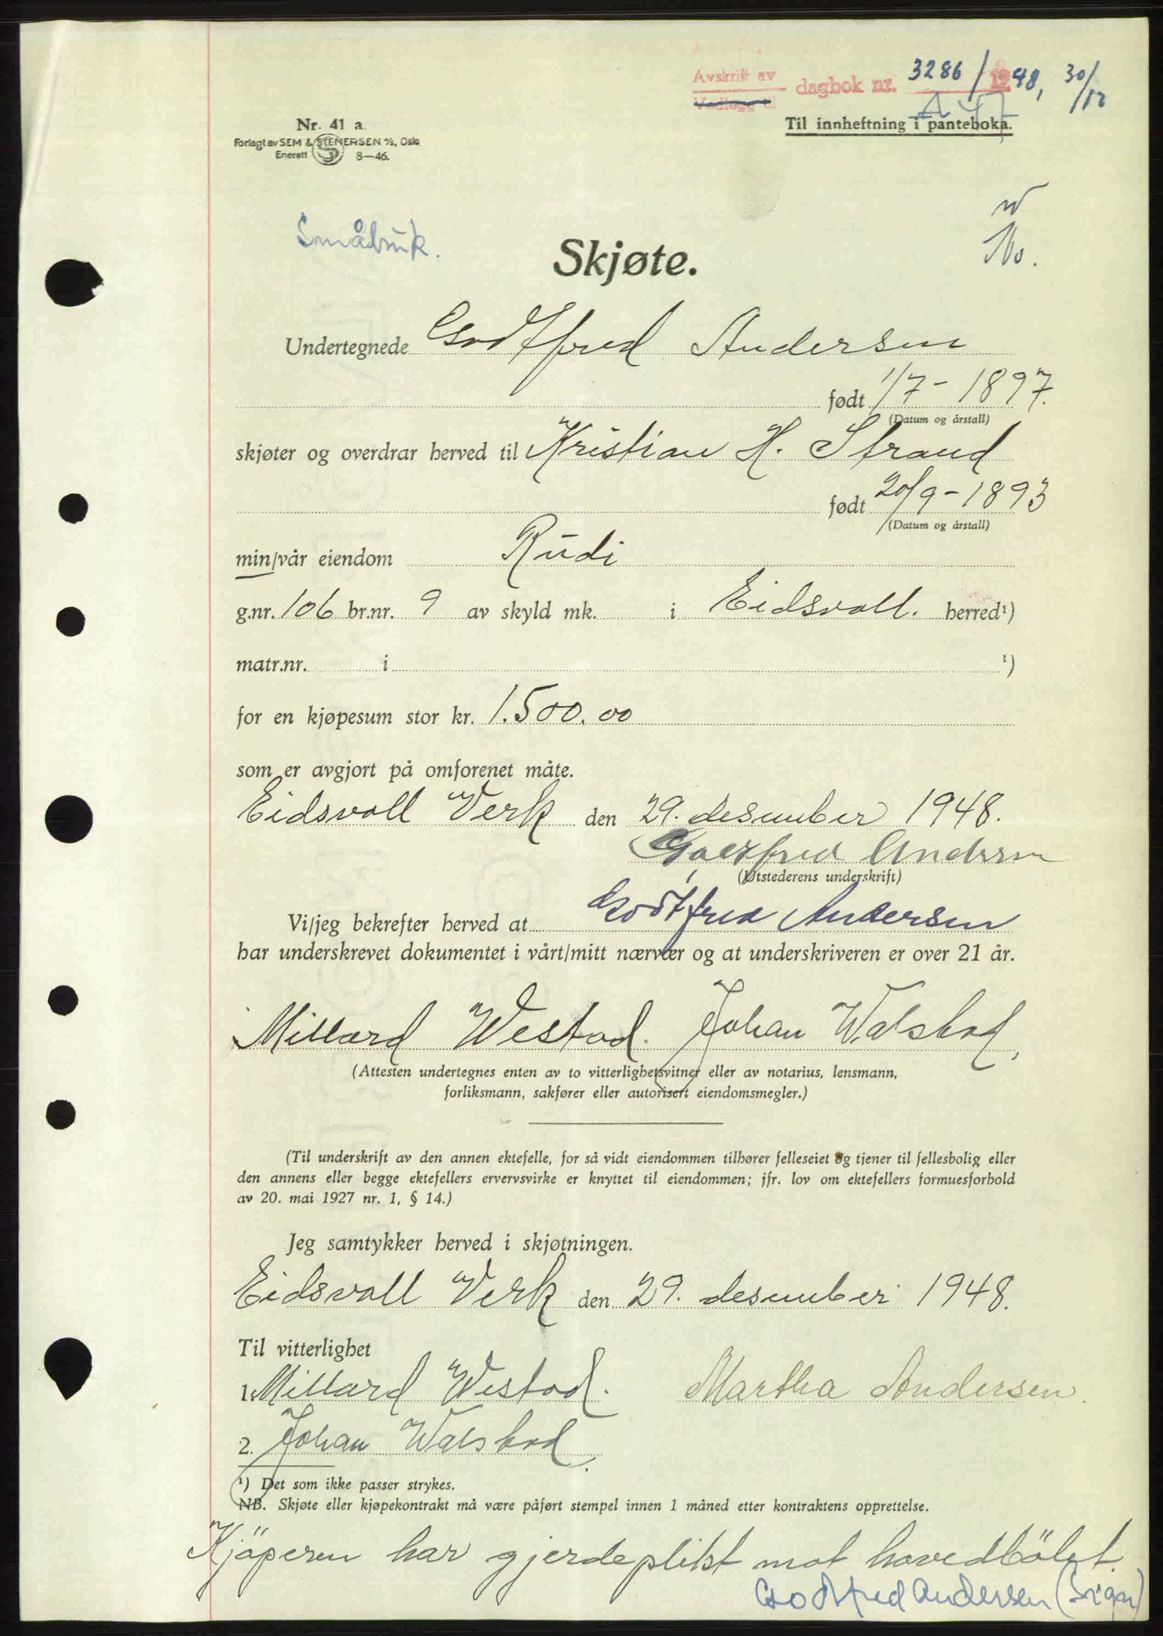 Avskrift av
Vedlegg til
dagbok nr. 3286/1948, 30/12
Til innheftning i panteboka.
Nr. 41 a.
Forlagt av SEM & STENERSEN A/S, Oslo
Enerett 8—46.
Småbruk.
No.
Skjøte.
Undertegnede Godtfred Andersen
født 1/7 - 1897.
(Datum og årstall)
skjøter og overdrar herved til Kristian H. Strand
født 20/9 - 1893
(Datum og årstall)
min/vår eiendom Rudi
g.nr. 106 br.nr. 9 av skyld mk. i Eidsvoll. herred¹)
matr.nr. i ¹)
for en kjøpesum stor kr. 1.500.00
som er avgjort på omforenet måte.
Eidsvoll Verk den 29. desember 1948.
Godtfred Andersen
(Utstederens underskrift)
Vi/jeg bekrefter herved at Godtfred Andersen
har underskrevet dokumentet i vårt/mitt nærvær og at underskriveren er over 21 år.
Millard Westad. Johan Walstad,
(Attesten undertegnes enten av to vitterlighetsvitner eller av notarius, lensmann,
forliksmann, sakfører eller autorisert eiendomsmegler.)
(Til underskrift av den annen ektefelle, for så vidt eiendommen tilhører felleseiet og tjener til fellesbolig eller
den annens eller begge ektefellers ervervsvirke er knyttet til eiendommen; jfr. lov om ektefellers formuesforhold
av 20. mai 1927 nr. 1, § 14.)
Jeg samtykker herved i skjøtningen.
Eidsvoll Verk den 29. desember 1948.
Til vitterlighet
1. Millard Westad. Martha Andersen.
2. Johan Walstad.
¹) Det som ikke passer strykes.
NB. Skjøte eller kjøpekontrakt må være påført stempel innen 1 måned etter kontraktens opprettelse.
Kjöperen har gjerdeplikt mot hovedbölet.
Godtfred Andersen (sign)